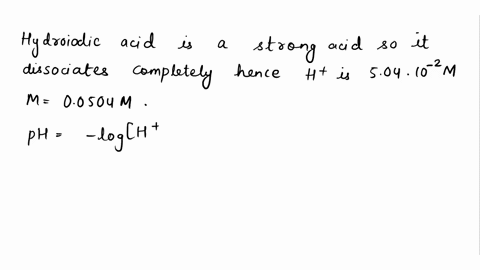 Hydroiodic acid is a strong acid so it
dissociates completely hence H⁺ is 5.04.10⁻² M
M = 0.0504 M .
pH = -log[H⁺